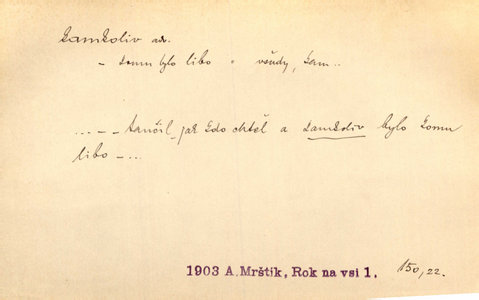 kamkoliv adv.
- komu bylo libo = všudy, kam..
...-- tančil, jak kdo chtěl a kamkoliv bylo komu
libo -...
1903 A. Mrštík, Rok na vsi 1. 150, 22.